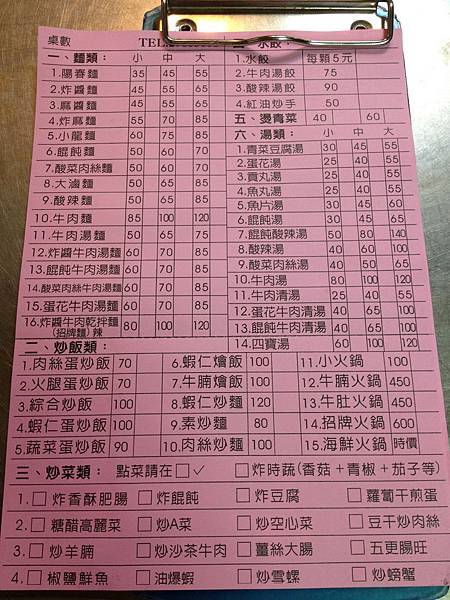 桌數 TEL:
一、麵類： 小 中 大
1.陽春麵 35 45 55
2.炸醬麵 45 55 65
3.麻醬麵 45 55 65
4.炸麻麵 55 70 85
5.小龍麵 50 60 70
6.餛飩麵 50 60 70
7.酸菜肉絲麵 50 60 70
8.大滷麵 50 65 85
9.酸辣麵 50 65 85
10.牛肉麵 85 100 120
11.牛肉湯麵 50 65 75
12.炸醬牛肉湯麵 60 70 85
13.餛飩牛肉湯麵 60 70 85
14.酸菜肉絲牛肉湯麵 60 70 85
15.蛋花牛肉湯麵 60 70 85
16.炸醬牛肉乾拌麵(招牌麵)辣 80 100 120
水餃：
1.水餃 每顆5元
2.牛肉湯餃 75
3.酸辣湯餃 90
4.紅油炒手 50
五、燙青菜 40 60
六、湯類： 小 中 大
1.青菜豆腐湯 30 45 55
2.蛋花湯 25 40 55
3.貢丸湯 25 40 55
4.魚丸湯 25 40 55
5.魚片湯 30 45 60
6.餛飩湯 30 45 65
7.餛飩酸辣湯 50 80 140
8.酸辣湯 40 60 100
9.酸菜肉絲湯 40 50 65
10.牛肉湯 40 80 100
11.牛肉清湯 25 40 55
12.蛋花牛肉清湯 40 50 65
13.餛飩牛肉清湯 40 50 65
14.四寶湯 60 100 140
二、炒飯類：
1.肉絲蛋炒飯 70 6.蝦仁燴飯 100 11.小火鍋 100
2.火腿蛋炒飯 70 7.牛腩燴飯 100 12.牛腩火鍋 450
3.綜合炒飯 100 8.蝦仁炒麵 120 13.牛肚火鍋 450
4.蝦仁蛋炒飯 100 9.素炒麵 80 14.招牌火鍋 600
5.蔬菜蛋炒飯 90 10.肉絲炒麵 100 15.海鮮火鍋 時價
三、炒菜類： 點菜請在□✓ □炸時蔬(香菇＋青椒＋茄子等)
1.□炸香酥肥腸 □炸餛飩 □炸豆腐 □蘿蔔干煎蛋
2.□糖醋高麗菜 □炒A菜 □炒空心菜 □豆干炒肉絲
3.□炒羊腩 □炒沙茶牛肉 □薑絲大腸 □五更腸旺
4.□椒鹽鮮魚 □油爆蝦 □炒雪螺 □炒螃蟹